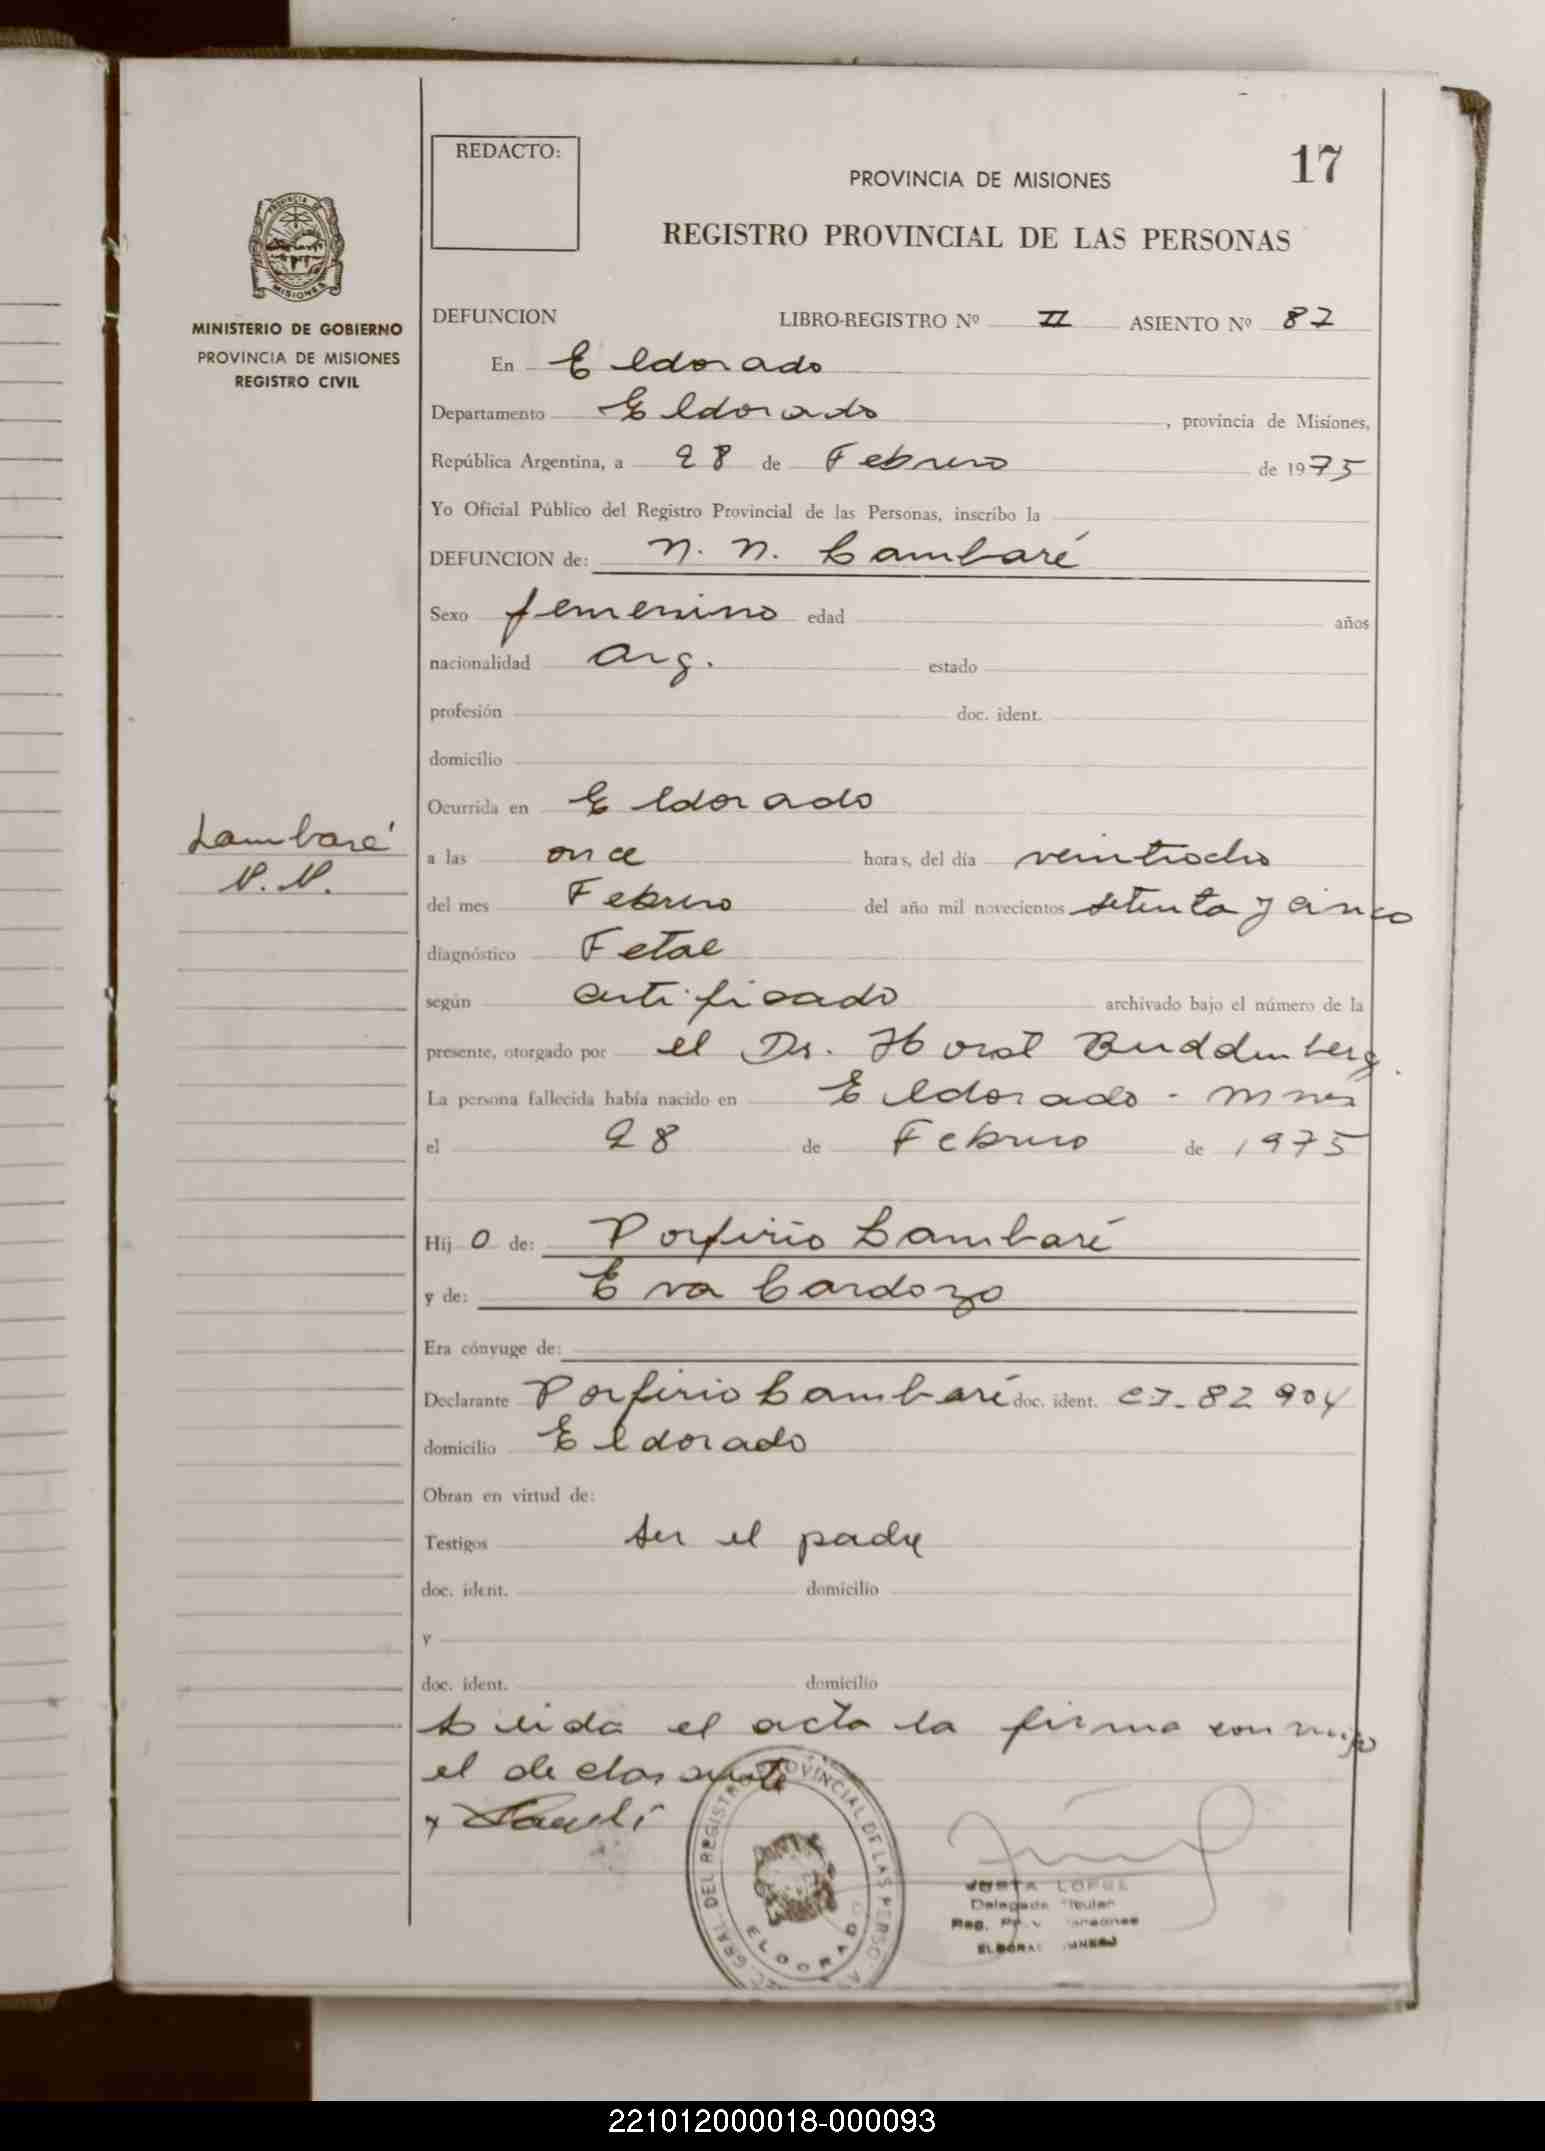 17
REDACTO:
PROVINCIA DE MISIONES
REGISTRO PROVINCIAL DE LAS PERSONAS
MINISTERIO DE GOBIERNO
PROVINCIA DE MISIONES
REGISTRO CIVIL
DEFUNCION LIBRO-REGISTRO Nº II ASIENTO Nº 82
En Eldorado
Departamento Eldorado, provincia de Misiones,
República Argentina, a 28 de Febrero de 1975
Yo Oficial Público del Registro Provincial de las Personas, inscribo la
DEFUNCION de: N. N. Lambaré
Sexo femenino edad años
nacionalidad Arg. estado
profesión doc. ident.
domicilio
Ocurrida en Eldorado
Lambaré
N. N.
a las once horas, del día veintiocho
del mes Febrero del año mil novecientos setenta y cinco
diagnóstico Fetal
según certificado archivado bajo el número de la
presente, otorgado por el Dr. Horst Buddenberg.
La persona fallecida había nacido en Eldorado - Mnes
el 28 de Febrero de 1975
Hij o de: Porfirio Lambaré
y de: Eva Cardozo
Era cónyuge de:
Declarante Porfirio Lambaré doc. ident. 82904
domicilio Eldorado
Obran en virtud de:
Testigos ser el padre
doc. ident. domicilio
y
doc. ident. domicilio
Leida el acta la firma conmigo
el declarante
GRAL. DEL REGISTRO PROVINCIAL DE LAS PERSO
ELDORADO
LOPEZ
221012000018-000093